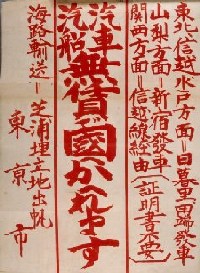 東北、信越、水戸方面＝日暮里、田端發車
山梨方面＝新宿發車
関西方面＝信越線経由（証明書不要）
汽車
汽船
無賃で國へかへれます
海路輸送＝芝浦埋立地出帆
東京市